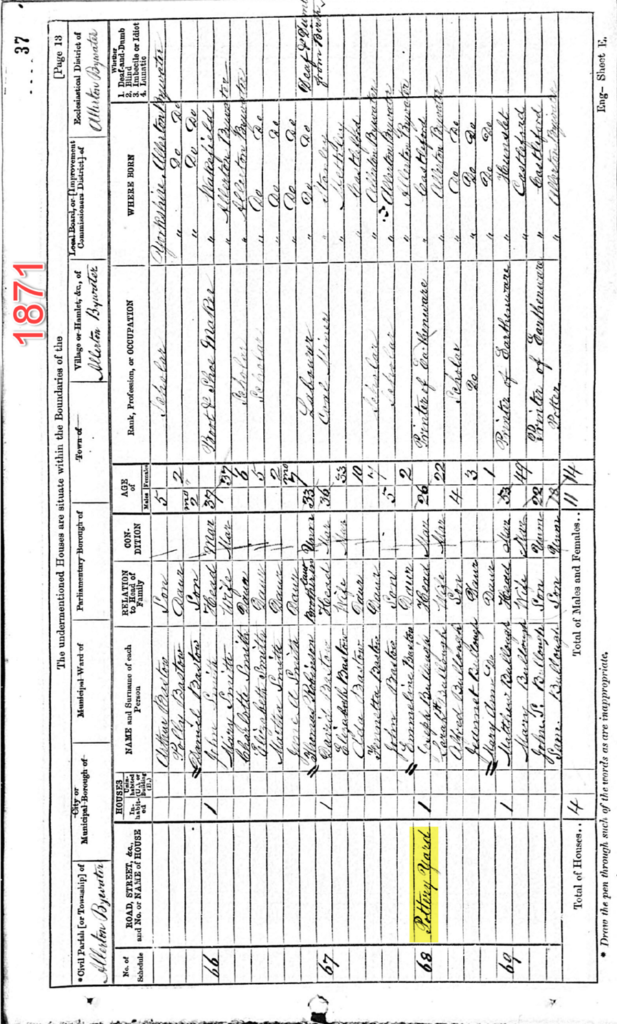 1871
37
[Page 13
The undermentioned Houses are situate within the Boundaries of the
*Civil Parish [or Township] of
Allerton Bywater
City or Municipal Borough of
Municipal Ward of
Parliamentary Borough of
Town of
Village or Hamlet, &c., of
Allerton Bywater
Local Board, or [Improvement Commissioners District] of
Ecclesiastical District of
Allerton Bywater
No. of Schedule ROAD, STREET, &c., and No. or NAME of HOUSE HOUSES Inhabited Uninhabited (U.), or Building (B.) NAME and Surname of each Person RELATION to Head of Family CONDITION AGE of Males Females Rank, Profession, or OCCUPATION WHERE BORN Whether 1. Deaf-and-Dumb 2. Blind 3. Imbecile or Idiot 4. Lunatic
Arthur Barstow Son 5 Scholar Yorkshire Allerton Bywater
Polly Barstow Daur 2 " Do Do
Daniel Barstow Son mo 2 " Do Do
66 1 John Smith Head Mar 37 Boot & Shoe Maker " Wakefield
Mary Smith Wife Mar 37 " Allerton Bywater
Charlotte Smith Daur 6 Scholar " Allerton Bywater
Elizabeth Smith Daur 5 Scholar " Do Do
Smith Daur 2 " Do Do
Smith Daur mo 7 " Do Do
Thomas Robinson Brother in law Unmar 33 Labourer " Do Do Deaf & Dumb from Birth
67 1 David Barstow Head Mar 36 Coal Miner " Stanley
Elizabeth Barstow Wife Mar 33 " Methley
Barstow Daur 10 " Castleford
Barstow Daur 7 Scholar " Allerton Bywater
John Barstow Son 5 Scholar " Allerton Bywater
Emmeline Barstow Daur 2 " Allerton Bywater
68 Pottery Yard 1 Joseph Bullough Head Mar 26 Printer of Earthenware " Castleford
Sarah Bullough Wife Mar 22 " Allerton Bywater
Alfred Bullough Son 4 Scholar " Do Do
Bullough Daur 3 Do " Do Do
Mary Ann Do Daur 1 " Do Do
69 1 Matthew Bullough Head Mar 53 Printer of Earthenware " Hunslet
Mary Bullough Wife Mar 49 " Castleford
John Bullough Son Unm 22 Printer of Earthenware " Castleford
Sam. Bullough Son Unm 18 Potter " Allerton Bywater
Total of Houses.. 4 Total of Males and Females.. 11 14
* Draw the pen through such of the words as are inappropriate.
Eng- Sheet E.